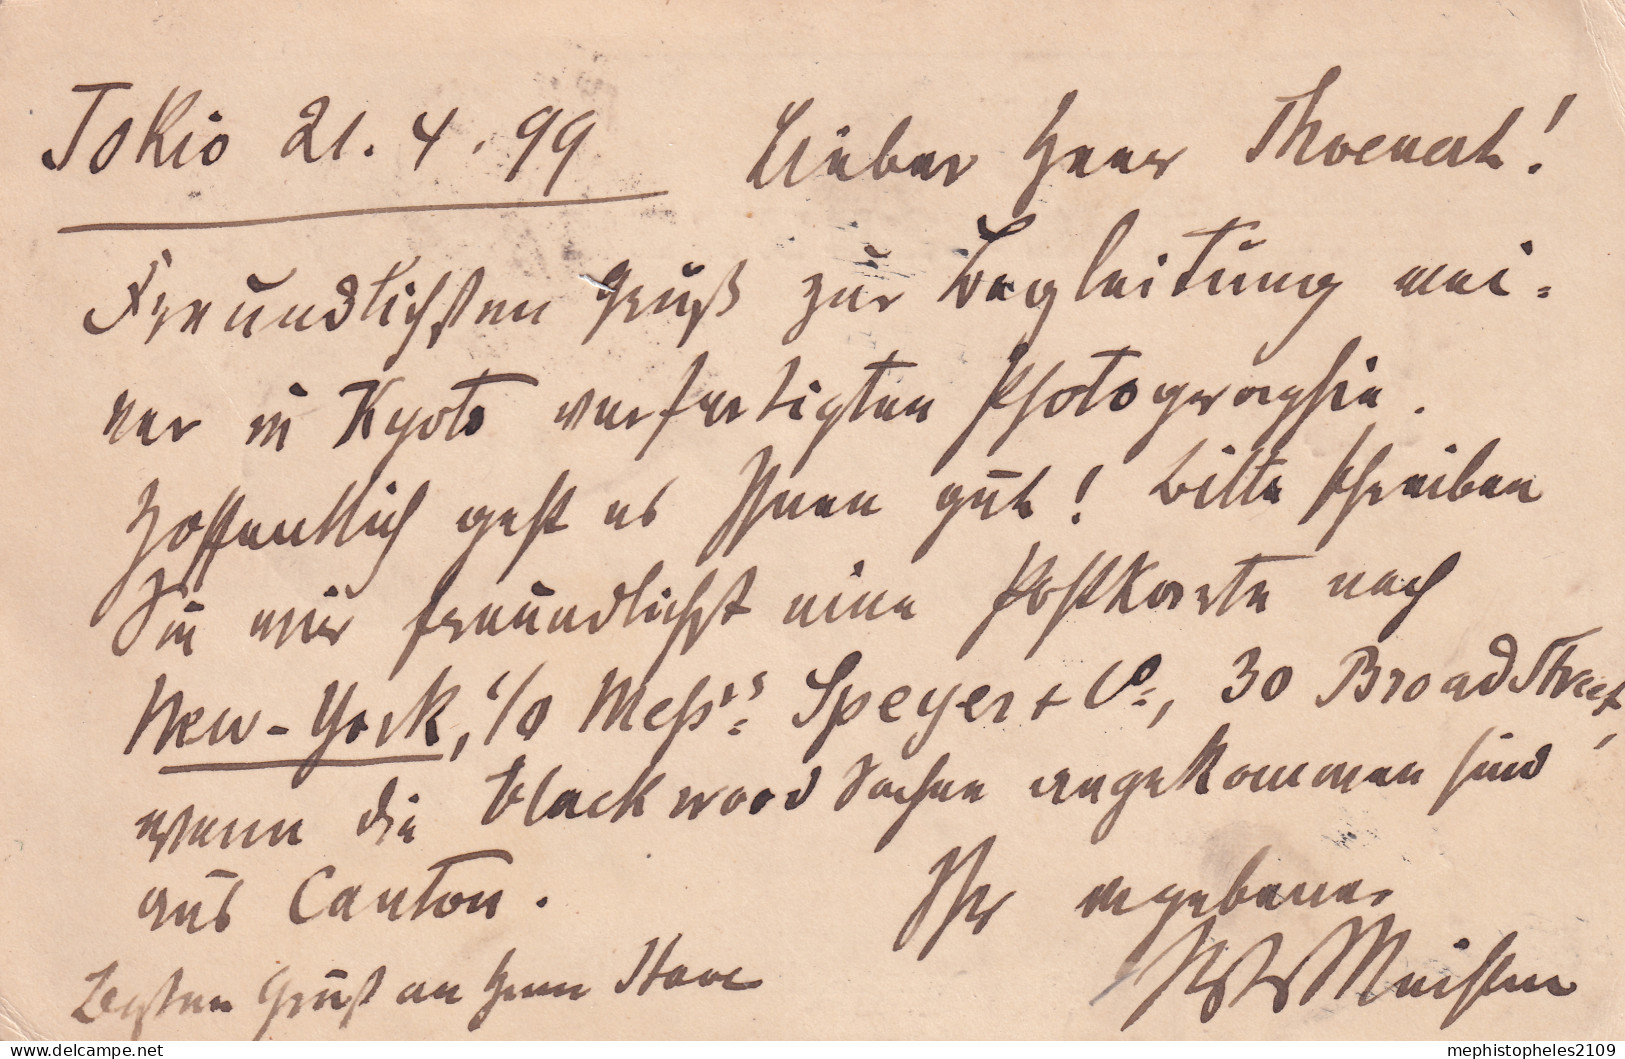 Tokio 21.4.99 Lieber Herr
Freundlichsten Gruß zur Begleitung mei-
ner in Kyoto verfertigten Photographie.
Hoffentlich geht es Ihnen gut! Bitte schreiben
Sie mir freundlichst eine Postkarte nach
New-York, c/o Messrs. Speyer + Co., 30 Broad Street,
wenn die blackwood Sachen angekommen sind
aus Canton.
Ihr ergebener
Besten Gruß an Herrn
mephistopheles2109